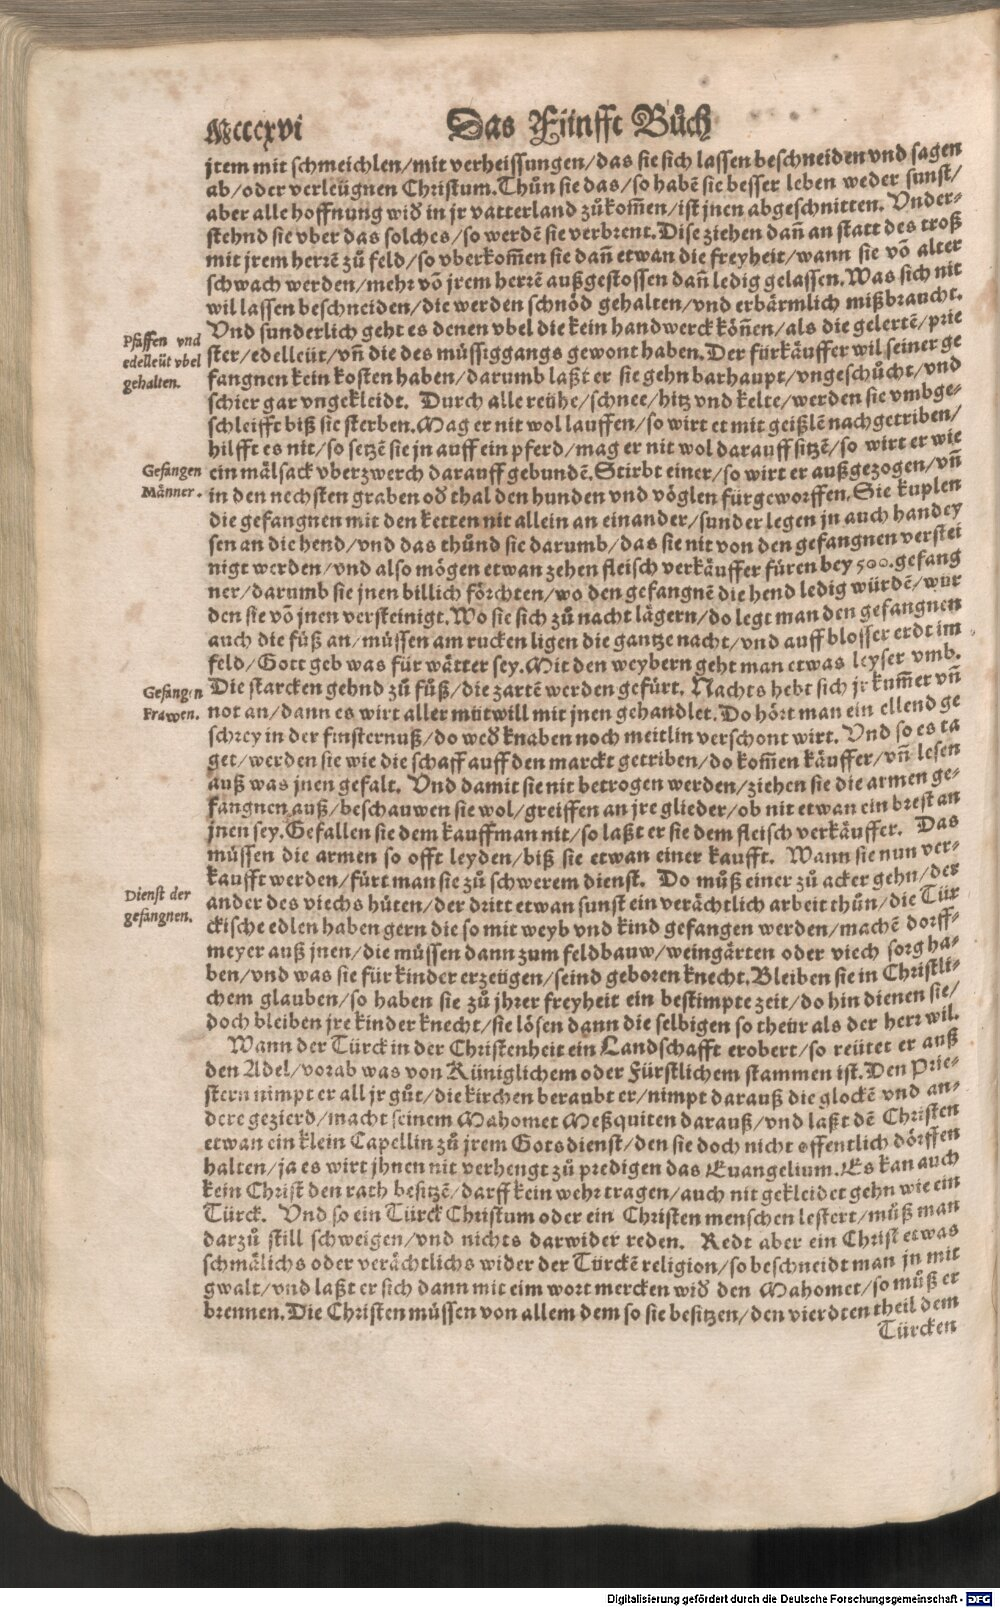 Mcccxvi Das Fünfft Bůch
jtem mit schmeichlen/mit verheissungen/das sie sich lassen beschneiden vnd sagen
ab/oder verleügnen Christum. Thůn sie das/so habẽ sie besser leben weder sunst/
aber alle hoffnung wiđ in jr vatterland zůkom̃en/ist jnen abgeschnitten. Vnder-
stehnd sie vber das solches/so werdẽ sie verbrent. Dise ziehen dañ an statt des troß
mit jrem herrẽ zů feld/so vberkom̃en sie dañ etwan die freyheit/wann sie võ alter
schwach werden/mehr võ jrem herrẽ außgestossen dañ ledig gelassen. Was sich nit
wil lassen beschneiden/die werden schnöd gehalten/vnd erbärmlich mißbraucht.
Vnd sunderlich geht es denen vbel die kein handwerck köñen/als die gelertẽ/prie
Pfaffen vnd
edelleüt vbel
gehalten.
ster/edelleüt/vñ die des müssiggangs gewont haben. Der fürkäuffer wil seiner ge
fangnen kein kosten haben/darumb laßt er sie gehn barhaupt/vngeschůcht/vnd
schier gar vngekleidt. Durch alle reühe/schnee/hitz vnd kelte/werden sie vmbge-
schleifft biß sie sterben. Mag er nit wol lauffen/so wirt er mit geißlẽ nachgetriben/
hilfft es nit/so setzẽ sie jn auff ein pferd/mag er nit wol darauff sitzẽ/so wirt er wie
Gefangen
Männer.
ein mälsack vberzwerch darauff gebundẽ. Stirbt einer/so wirt er außgezogen/vñ
in den nechsten graben ođ thal den hunden vnd vöglen fürgeworffen. Sie kuplen
die gefangnen mit den ketten nit allein an einander/sunder legen jn auch handey
sen an die hend/vnd das thůnd sie darumb/das sie nit von den gefangnen verstei
nigt werden/vnd also mögen etwan zehen fleisch verkäuffer füren bey 500. gefang
ner/darumb sie jnen billich förchten/wo den gefangnẽ die hend ledig würdẽ/wur
den sie võ jnen versteinigt. Wo sie sich zů nacht lägern/do legt man den gefangnen
auch die füß an/müssen am rucken ligen die gantze nacht/vnd auff blosser erdt im
feld/Gott geb was für wätter sey. Mit den weybern geht man etwas leyser vmb.
Gefangen
Frawen.
Die starcken gehnd zů fůß/die zartẽ werden gefürt. Nachts hebt sich jr kum̃er vñ
not an/dann es wirt aller můtwill mit jnen gehandlet. Do hört man ein ellend ge
schrey in der finsternuß/do weđ knaben noch meitlin verschont wirt. Vnd so es ta
get/werden sie wie die schaff auff den marckt getriben/do kom̃en käuffer/vñ lesen
auß was jnen gefalt. Vnd damit sie nit betrogen werden/ziehen sie die armen ge-
fangnen auß/beschauwen sie wol/greiffen an jre glieder/ob nit etwan ein brest an
jnen sey. Gefallen sie dem kauffman nit/so laßt er sie dem fleisch verkäuffer. Das
müssen die armen so offt leyden/biß sie etwan einer kaufft. Wann sie nun ver-
kaufft werden/fürt man sie zů schwerem dienst. Do můß einer zů acker gehn/der
Dienst der
gefangnen.
ander des viechs hüten/der dritt etwan sunst ein verächtlich arbeit thůn/die Tür
ckische edlen haben gern die so mit weyb vnd kind gefangen werden/machẽ dorff-
meyer auß jnen/die müssen dann zum feldbauw/weingärten oder viech sorg ha-
ben/vnd was sie für kinder erzeügen/seind geboren knecht. Bleiben sie in Christli-
chem glauben/so haben sie zů jhrer freyheit ein bestimpte zeit/do hin dienen sie/
doch bleiben jre kinder knecht/sie lösen dann die selbigen so theür als der herr wil.
Wann der Türck in der Christenheit ein Landschafft erobert/so reütet er auß
den Adel/vorab was von Küniglichem oder Fürstlichem stammen ist. Den Prie-
stern nimpt er all jr gůt/die kirchen beraubt er/nimpt darauß die glockẽ vnd an-
dere gezierd/macht seinem Mahomet Meßquiten darauß/vnd laßt dẽ Christen
etwan ein klein Capellin zů jrem Gotsdienst/den sie doch nicht offentlich dörffen
halten/ja es wirt jhnen nit verhengt zů predigen das Euangelium. Es kan auch
kein Christ den rath besitzẽ/darff kein wehr tragen/auch nit gekleidet gehn wie ein
Türck. Vnd so ein Türck Christum oder ein Christen menschen lestert/můß man
darzů still schweigen/vnd nichts darwider reden. Redt aber ein Christ etwas
schmälichs oder verächtlichs wider der Türckẽ religion/so beschneidt man jn mit
gwalt/vnd laßt er sich dann mit eim wort mercken wiđ den Mahomet/so můß er
brennen. Die Christen müssen von allem dem so sie besitzen/den vierdten theil dem
Türcken
Digitalisierung gefördert durch die Deutsche Forschungsgemeinschaft - DFG